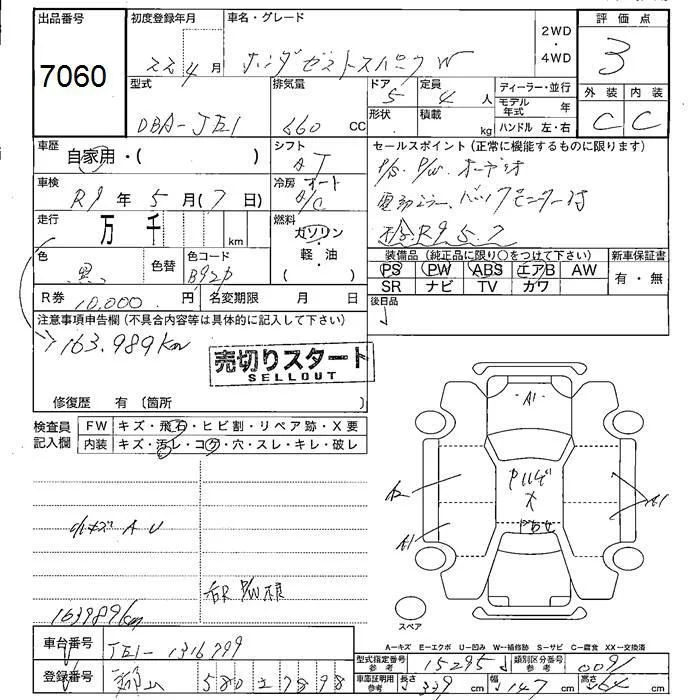 出品番号 初度登録年月 車名・グレード 2WD・4WD 評価点
7060 22年4月 ホンダゼストスパークW 3
型式 排気量 ドア 定員 ディーラー・並行 外装 内装
DBA-JE1 660 CC 5 4人 モデル年式 年 C C
形状 積載 kg ハンドル 左・右
車歴 シフト セールスポイント(正常に機能するものに限ります)
自家用・( ) AT P/S. P/W. オーデオ
車検 冷房 オート 電動ミラー、バックモニター付
R9年5月(7日) A/C 検R9.5.7
走行 万 千 km 燃料
ガソリン 装備品(純正品に限り○をつけて下さい) 新車保証書
色 色替 色コード 軽・油 PS PW ABS エアB AW 有・無
黒 B92P ( ) SR ナビ TV カワ
R券 10,000.円 名変期限 月 日 後日品
注意事項申告欄(不具合内容等は具体的に記入して下さい)
163.989km
売切りスタート
SELLOUT
修復歴 有(箇所 )
検査員記入欄 FW キズ・飛石・ヒビ割・リペア跡・X要
内装 キズ・汚レ・コゲ・穴・スレ・キレ・破レ
A1
A2 A1
A1
小キズ A U
163989km
スペア
A-キズ E-エクボ U-凹み W-補修跡 S-サビ C-腐食 XX-交換済
車台番号 JE1-1316799 型式指定番号 参考 15295 類別区分番号 参考 0091
登録番号 580 に 7898 車庫証明用 参考 長さ 339 cm 幅 147 cm 高さ 164 cm